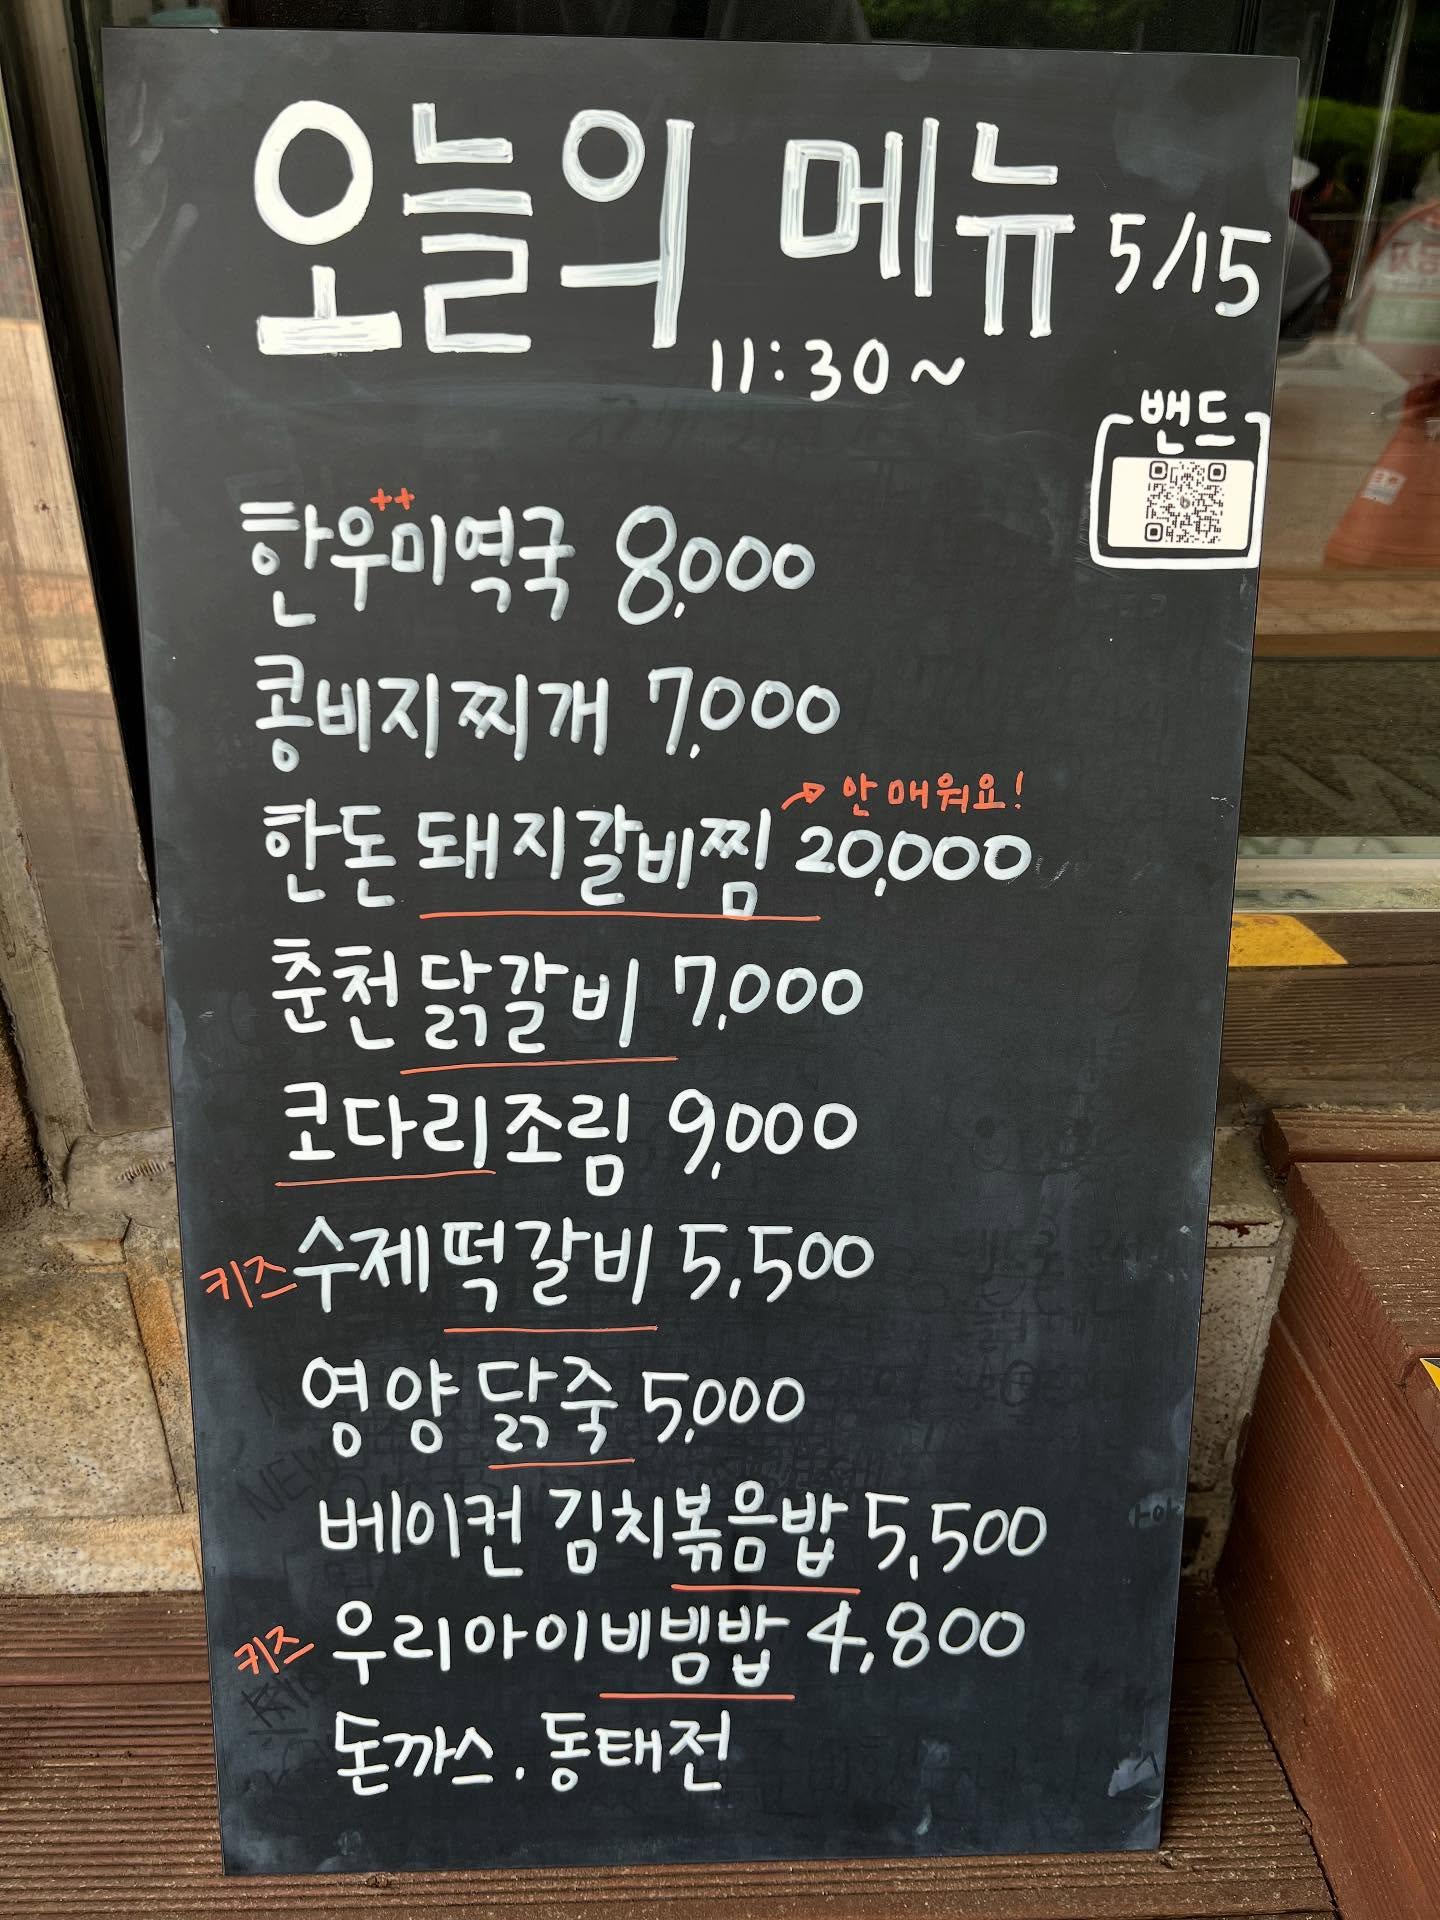 오늘의 메뉴 5/15
11:30~
밴드
한우++미역국 8,000
콩비지찌개 7,000
→ 안매워요!
한돈 돼지갈비찜 20,000
춘천 닭갈비 7,000
코다리조림 9,000
키즈 수제떡갈비 5,500
영양 닭죽 5,000
베이컨 김치볶음밥 5,500
키즈 우리아이비빔밥 4,800
돈까스. 동태전